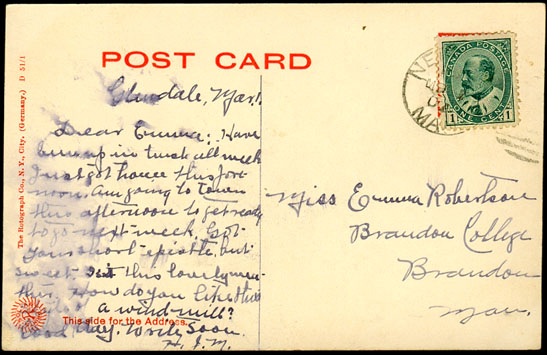 POST CARD
Glendale, Mar.1
Dear Emma: Have
been up in bush all week
Just got home this fore
noon. Am going to town
this afternoon to get ready
to go next week. Got
your short epistle, but
sweet this lovely
this. How do you like this
a wind-mill?
Good day. Write Soon.
H.J.M.
Miss Emma Robertson
Brandon College
Brandon
Man.
CANADA POSTAGE
1 ONE CENT 1
NE
MA
The Rotograph Co., N.Y., City. (Germany.) D 51/1
This side for the Address.